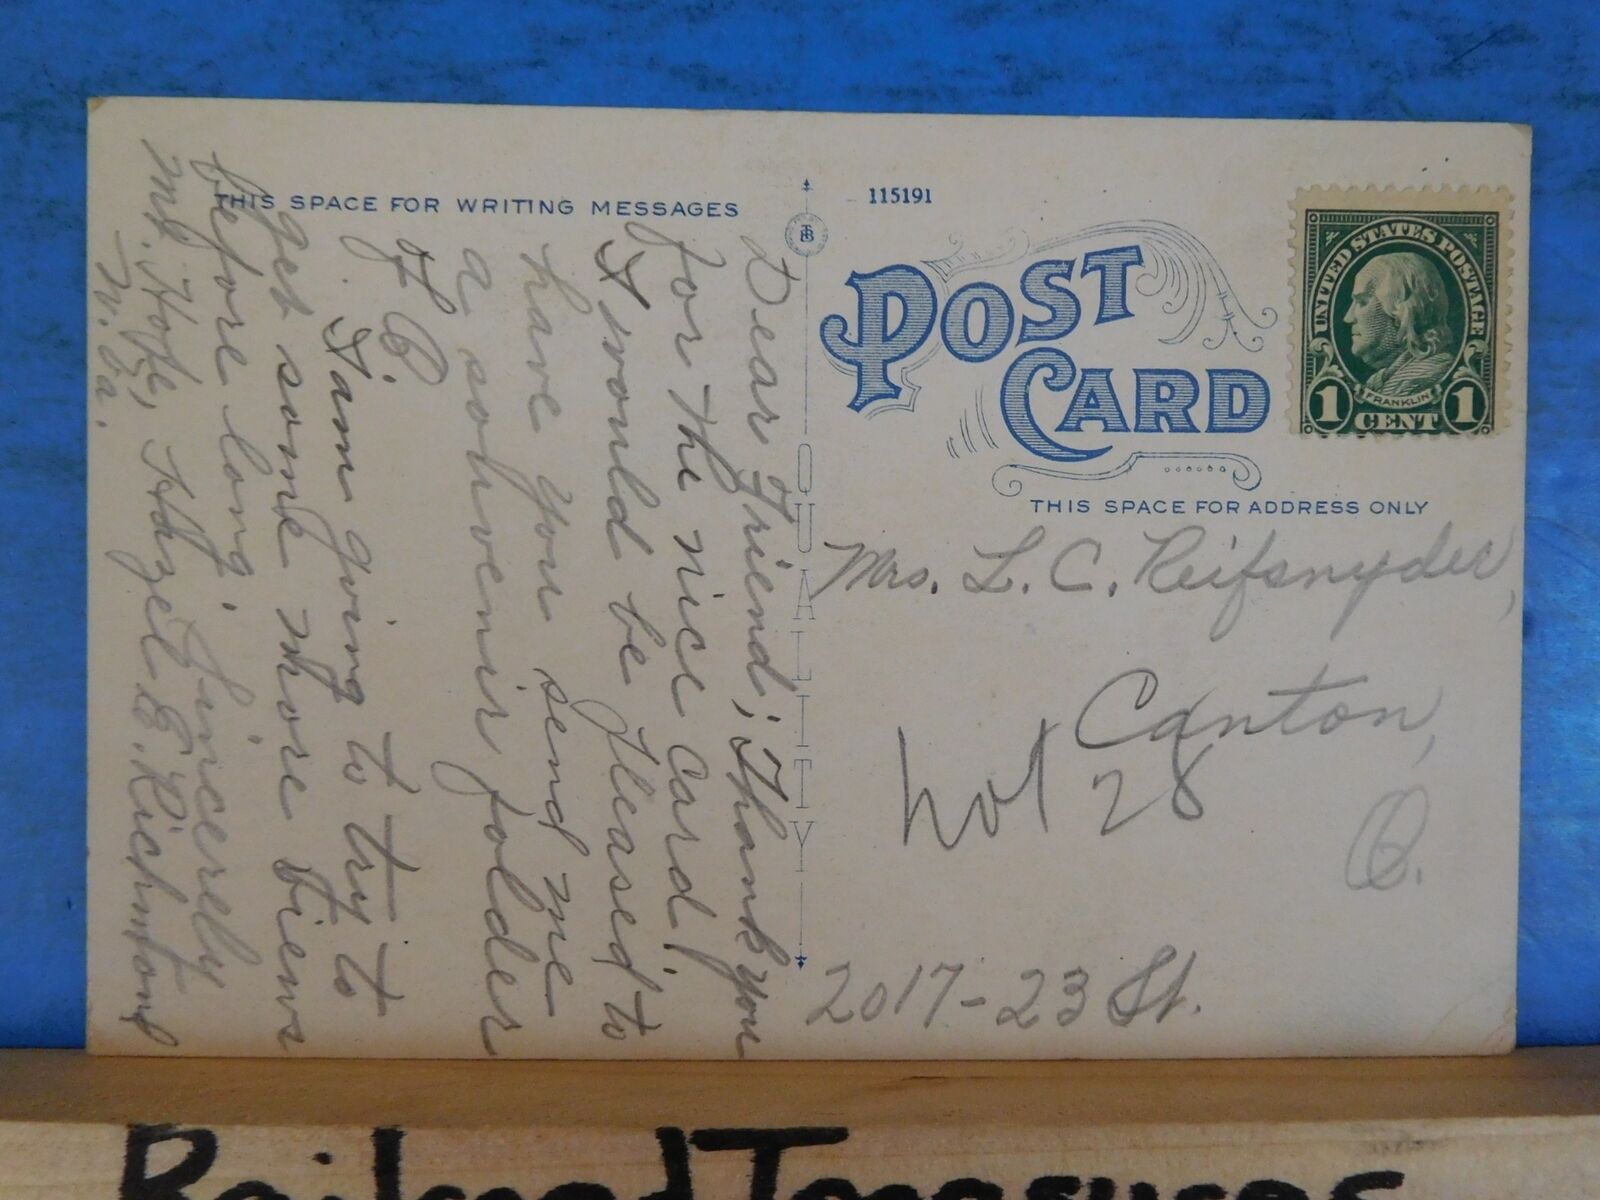 THIS SPACE FOR WRITING MESSAGES
Dear Friend; Thank you
for the nice card!
I would be pleased to
have you send me
a souvenir folder
of C.
I am going to try to
get some more views
before long.
Sincerely
Mt. Hope, Hazel E. Richmond
W. Va.
115191
POST
CARD
QUALITY
UNITED STATES POSTAGE
FRANKLIN
1 CENT 1
THIS SPACE FOR ADDRESS ONLY
Mrs. L. C. Reifsnyder,
Canton,
28
O.
2017-23 St.
Railroad Treasures